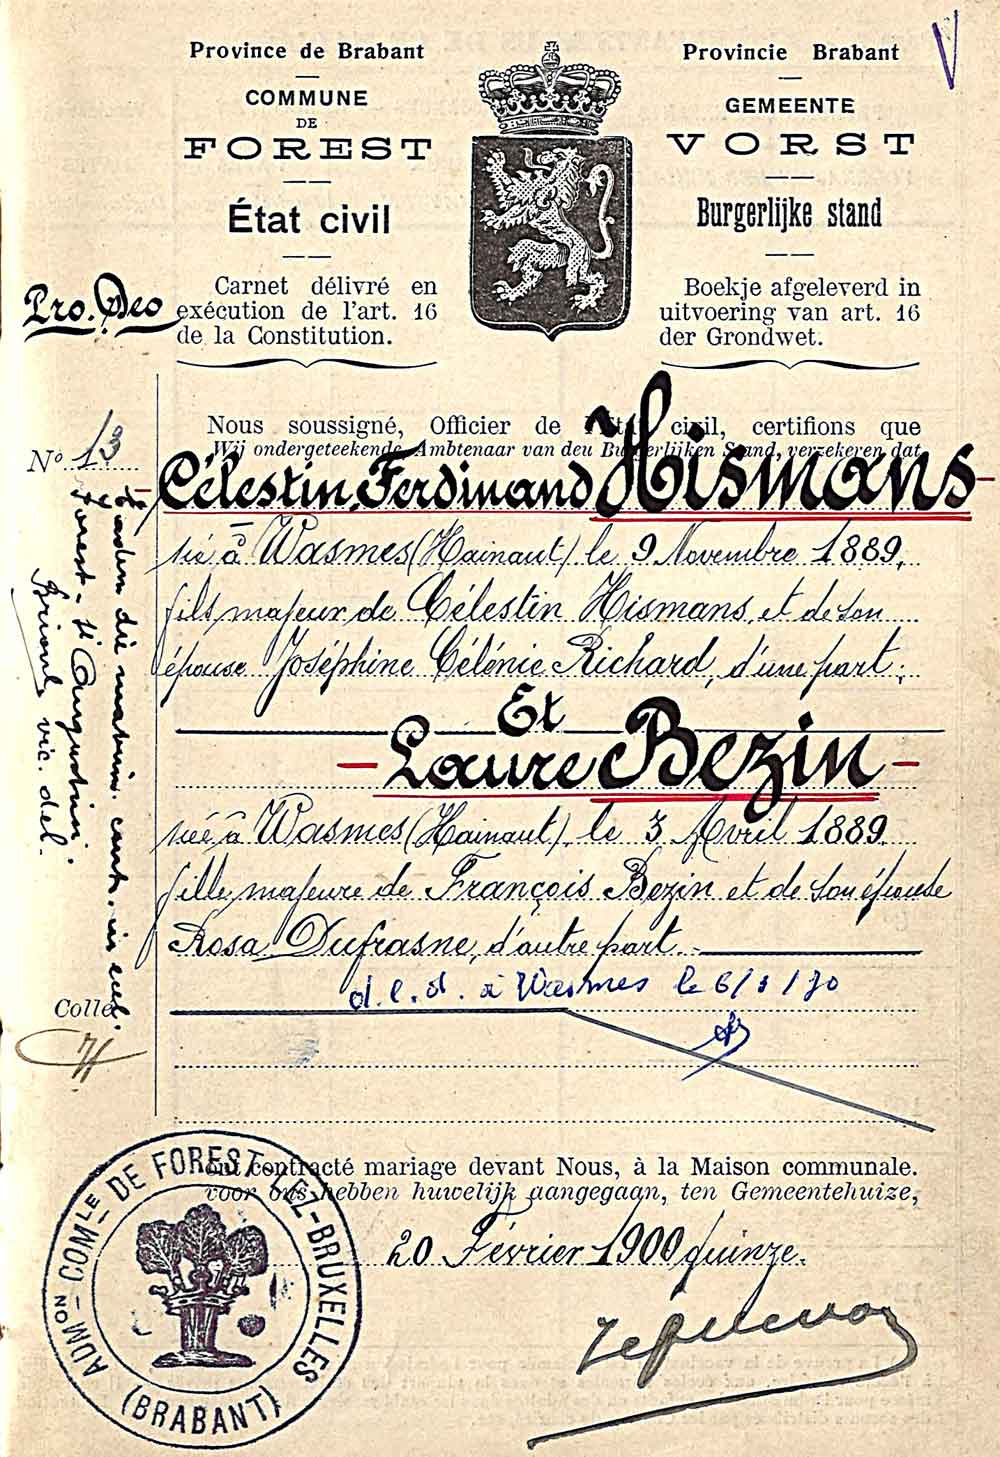 Province de Brabant
COMMUNE
DE
FOREST
État civil
Carnet délivré en
exécution de l'art. 16
de la Constitution.
Provincie Brabant
GEMEENTE
VORST
Burgerlijke stand
Boekje afgeleverd in
uitvoering van art. 16
der Grondwet.
Pro. Deo
Nº 13
Nous soussigné, Officier de l'État civil, certifions que
Wij ondergeteekende Ambtenaar van den Burgerlijken Stand, verzekeren dat
Célestin, Ferdinand Hismans
né à Wasmes (Hainaut) le 9 Novembre 1889,
fils majeur de Célestin Hismans, et de son
épouse Joséphine Célénie Richard, d'une part;
Et
Laure Bezin
née à Wasmes (Hainaut), le 3 Avril 1889.
fille majeure de François Bezin et de son épouse
Rosa Dufrasne, d'autre part.
d.c.d. à Wasmes le 6/1/70
Eadem die matrim. cont. in eccl.
Forest - St Augustin.
vic. del.
Colle
ont contracté mariage devant Nous, à la Maison communale.
voor ons hebben huwelijk aangegaan, ten Gemeentehuize,
20 Février 1900 quinze.
ADMON COMLE DE FOREST-LEZ-BRUXELLES
(BRABANT)